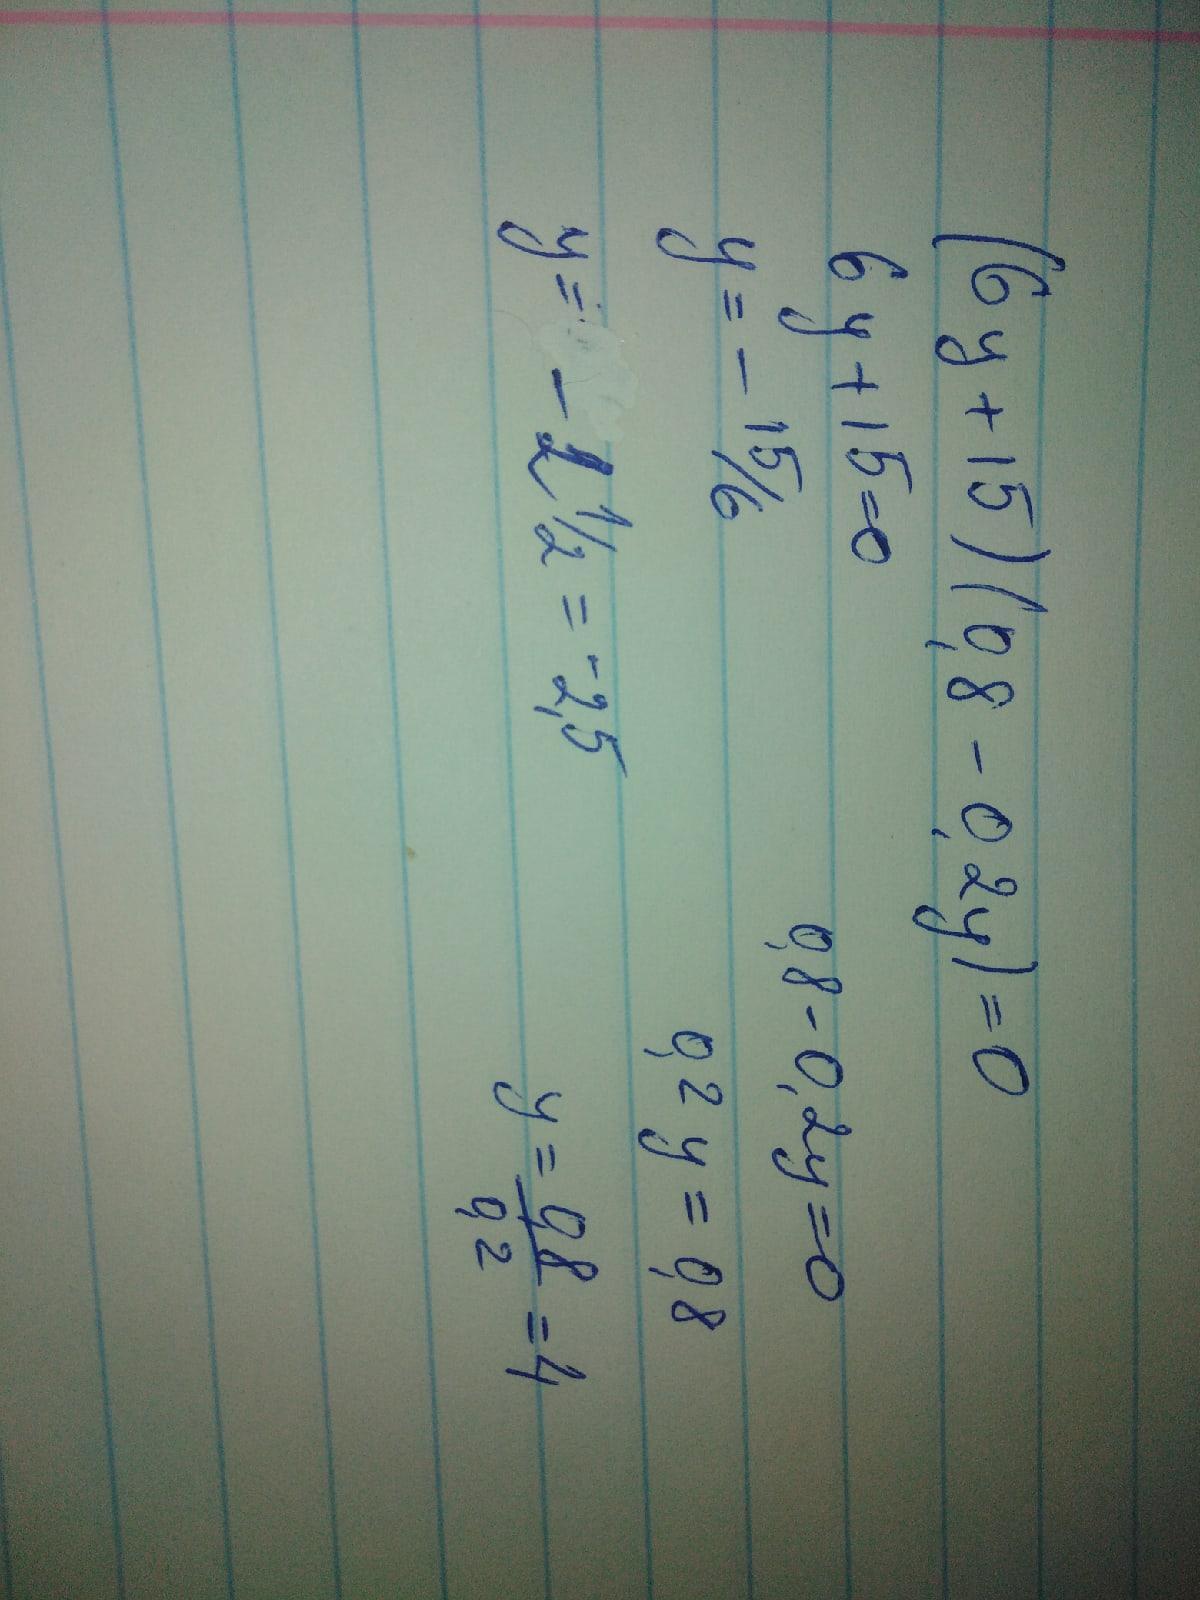 (6y+15)(0,8-0,2y)=0
6y+15=0 0,8-0,2y=0
y=-15/6 0,2y=0,8
y=-2 1/2=-2,5 y=0,8/0,2=4